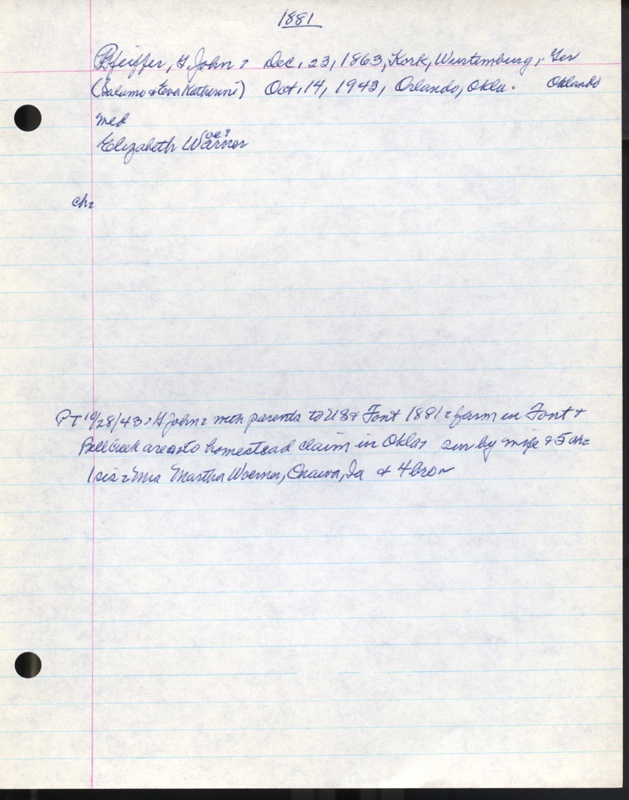 1881
Pfeiffer, G John: Dec. 23, 1863, Kork, Wurtemburg, Ger
( Katherine) Oct. 14, 1943, Orlando, Okla. Orlando
med
Elizabeth Warner oe?
ch:
PT 10/28/43: G John: with parents to US & Font 1881: farm in Font &
Bell Creek area to homestead claim in Okla; sur by wife & 5 ch:
1 sis: Mrs Martha Woerner, Onawa, Ia & 4 bro~